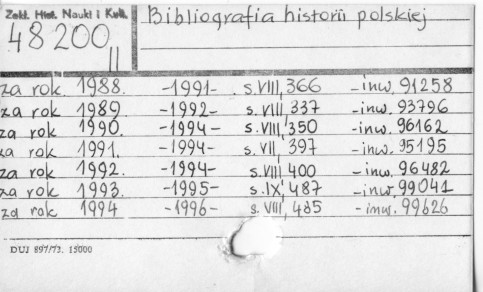 Zakł. Hist. Nauki i Kult.
48200
II
Bibliografia historii polskiej
za rok. 1988. -1991- s. VIII, 366 -inw. 91258
za rok 1989. -1992- s. VIII 337 -inw. 93796
za rok 1990. -1994- s. VIII, 350 -inw. 96162
za rok 1991. -1994- s. VII, 397 -inw. 95195
za rok 1992. -1994- s. VIII, 400 -inw. 96482
za rok 1993. -1995- s. IX, 487 -inw. 99041
za rok 1994 -1996- s. VIII, 485 -inw. 99626
DUJ 897/73. 15000